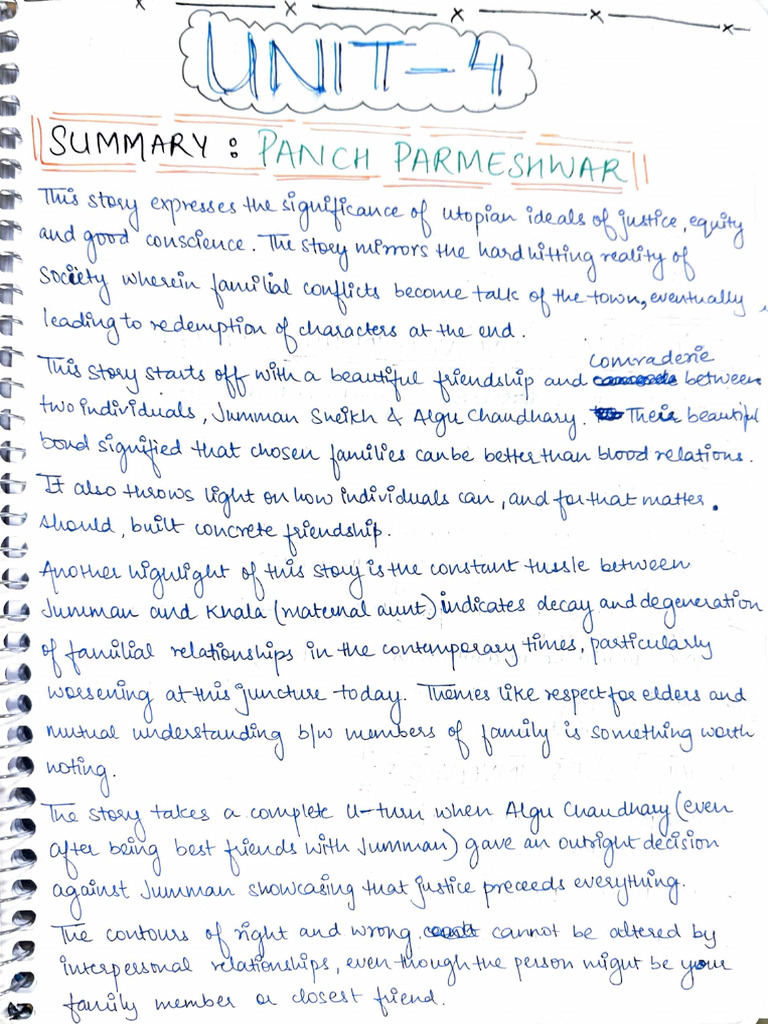 UNIT-4
SUMMARY: PANCH PARMESHWAR
This story expresses the significance of utopian ideals of justice, equity
and good conscience. The story mirrors the hard hitting reality of
society wherein familial conflicts become talk of the town, eventually
leading to redemption of characters at the end.
comraderie
This story starts off with a beautiful friendship and between
two individuals, Jumman Sheikh & Algu Chaudhary. Their beautiful
bond signified that chosen families can be better than blood relations.
It also throws light on how individuals can, and for that matter.
should, built concrete friendship.
Another highlight of this story is the constant tussle between
Jumman and Khala (maternal aunt) indicates decay and degeneration
of familial relationships in the contemporary times, particularly
worsening at this juncture today. Themes like respect for elders and
mutual understanding b/w members of family is something worth
noting.
The story takes a complete U-turn when Algu Chaudhary (even
after being best friends with Jumman) gave an outright decision
against Jumman showcasing that justice precedes everything.
The contours of right and wrong cannot be altered by
interpersonal relationships, even though the person might be your
family member or closest friend.